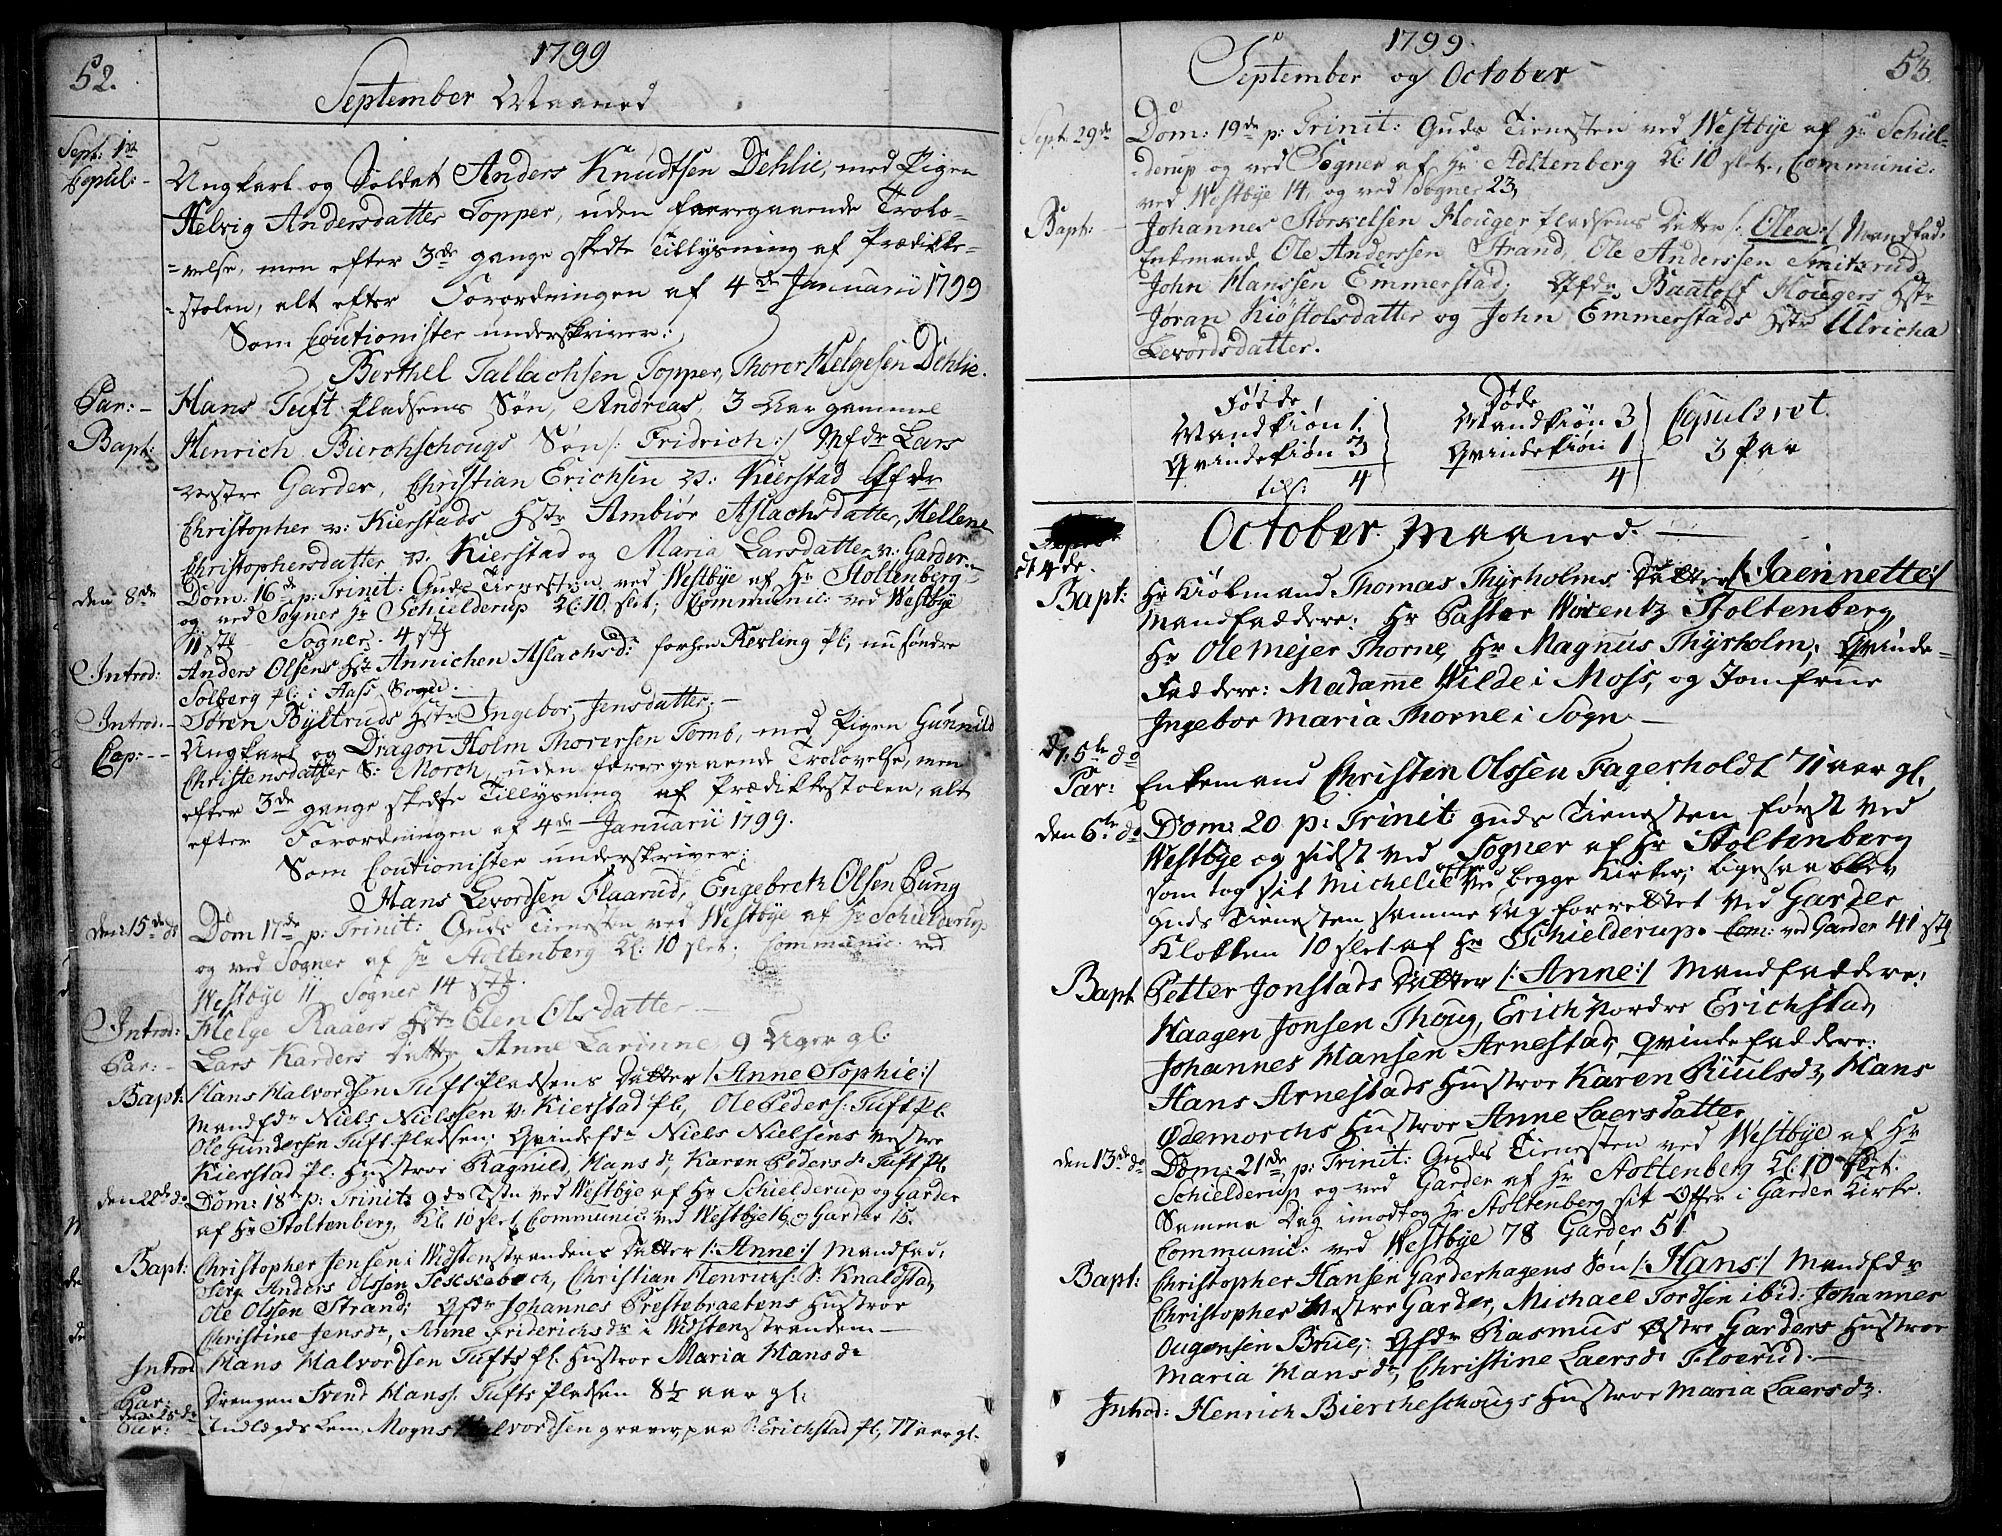 52.
1799
September Maaned
Sept: 1ste
Copul: -
Ungkarl og Soldat Anders Knudtsen Dehlie, med Pigen
Helvig Andersdatter Topper, uden foregaaende Trolo-
-velse, men efter 3de gange skedte Tillysning af Prædikke-
-stolen, alt efter Forordningen af 4de Januarii 1799
Som Coutionister underskriver:
Berthel Tallachsen Topper, Thorer Helgesen Dehlie.
Par: - Hans Tuft Pladsens Søn, Andreas, 3 Aar gammel
Bapt: Henrich Bierchschougs Søn /: Fridrich :/ Mfdr Lars
vestre Garder, Christian Erichsen v: Kierstad Qfdr
Christopher v: Kierstads Hstr Ambiør Aslachsdatter, Hellene
Christophersdatter v: Kierstad og Maria Larsdatter v: Garder.
den 8de Dom: 16de p: Trinit: Guds Tienesten ved Westbye af Hr Stoltenberg
og ved Sogner Hr Schielderup Kl: 10 slet; Communic: ved Westbye
11 stk Sogner 4 stk
Introd: Anders Olsens Hstr Annichen Aslachsd: forhen Kerling Pl, nu søndre
Solberg Pl: i Aass Sogn.
Introd: - Søren Byltruds Hstr Ingebor Jensdatter. -
Cop: - - Ungkarl og Dragon Holm Thorersen Tomb, med Pigen Gunnild
Christensdatter S: Morch, uden foregaaende Trolovelse, men
efter 3de gange skedte Tillysning af Prædikkestolen, alt
efter Forordningen af 4de Januarii 1799.
Som Coutionister underskriver:
Hans Levordsen Flaarud, Engebreth Olsen Pung
den 15de ds Dom 17de p: Trinit: Guds Tienesten ved Westbye af Hr Schielderup
og ved Sogner af Hr Stoltenberg Kl: 10 slet; Communic: ved
Westbye 11 Sogner 14 stk.
Introd: Helge Raaers Hstr Elen Olsdatter -
Par: - Lars Karders Datter Anne Larinne 9 Uger gl.
Bapt: Hans Halvordsen Tuft Pladsens Datter /: Anne Sophie :/
Mandfdr Niels Nielssen v: Kierstad Pl, Ole Peders: Tuft Pl.
Ole Gundersen Tuft Pladsen; Qvindefdr Niels Nielsens vestre
Kierstad Pl: Hustroe Ragnild Hansdr, Karen Pedersdr Tuft Pl.
den 22de do Dom: 18de p: Trinit: gds Tstn ved Westbye af Hr Schielderup og Garder
af Hr Stoltenberg, Kl: 10 slet Communic: ved Westbye 16 og Garder 15.
Bapt: Christopher Jensen i Widstenstrandens Datter /: Anne :/ Mandfad:
Serg Anders Olsson, Christian Henrichs: S: Knaldstad,
Ole Olsen Strand; Qfdr Johannes Prestebraatens Hustroe
Christine Jensdr, Anne Friderichsdr i Widstenstranden -
Introd Hans Halvordsen Tufts Pl. Hustroe Maria Hansdr
Par: Drengen Svend Hanss: Tufts Pladsen 8½ aar gl:
den 25de do
Par: Indlagds Lem, Mogns Halvordsen graver paa S: Erichstad Pl, 77 aar gl.
1799.
53.
September og October
Sept 29de Dom: 19de p: Trinit: Guds Tienesten ved Westbye af Hr Schiel-
-derup og ved Sogner af Hr Stoltenberg Kl: 10 slet, Communic:
ved Westbye 14, og ved Sogner 23,
Bapt: Johannes Storkelsen Houger Pladsens Datter /: Olea :/ Mandfad:
Enkemand Ole Anderssen Strand, Ole Anderssen Smitsrud,
John Hanssen Emmerstad; Qfdr Baatolf Hougers Hstr
Joran Kiøstolsdatter og John Emmerstads Hstr Ulricha
Levordsdatter.
Fødde
Mandkiøn 1.
Qvindekiøn 3
tils: 4
Døde
Mandkiøn 3
Qvindekiøn 1
4
Copuleret.
3 Par
October Maaned. -
d 4de.
Bapt: Hr Kiøbmand Thomas Thyrholms Datter /: Jaennette :/
Mandfaddere: Hr Pastor Wincentz Stoltenberg,
Hr Ole Mejer Thorne, Hr Magnus Thyrholm; Qvinde-
Faddere: Madame Wilde i Moss, og Jomfrue
Ingebor Maria Thorne i Sogn -
d: 5te do
Par: Enkemand Christen Olssen Fagerholdt 71 aar gl.
den 6te do Dom: 20 p: Trinit: guds Tienesten først ved
Westbye og sidst ved Sogner af Hr Stoltenberg
som tog sit Michelie offer ved begge Kirker; ligesaa blev
guds Tienesten samme Dag forrettet ved Garder
Klokken 10 slet af Hr Schielderup. Com: ved Garder 41 stk
Bapt Petter Jonstads Datter /: Anne :/ Mandfaddere:
Haagen Jonsen Thoug, Erich Nordre Erichstad,
Johannes Hansen Arnestad, Qvindefaddere:
Hans Arnestads Hustroe Karen Riulsdr, Hans
Ødemorchs Hustroe Anne Laersdatter
den 13de do Dom: 21de p: Trinit: Guds Tienesten ved Westbye af Hr
Schielderup og ved Garder af Hr Stoltenberg Kl: 10 slet:
Samme Dag imodtog Hr Stoltenberg sit Offer i Garder Kirke.
Communic: ved Westbye 78 Garder 51
Bapt: Christopher Hansen Garderhagens Søn /: Hans :/ Mandfdr
Christopher Vestre Garder, Michael Tordsen ibid: Johannes
Ougensen Brue; Qfdr Rasmus Østre Garders Hustroe
Maria Hansdr, Christine Laersdr Floerud. -
Introd: Henrich Biercheschougs Hustroe Maria Laersdr.